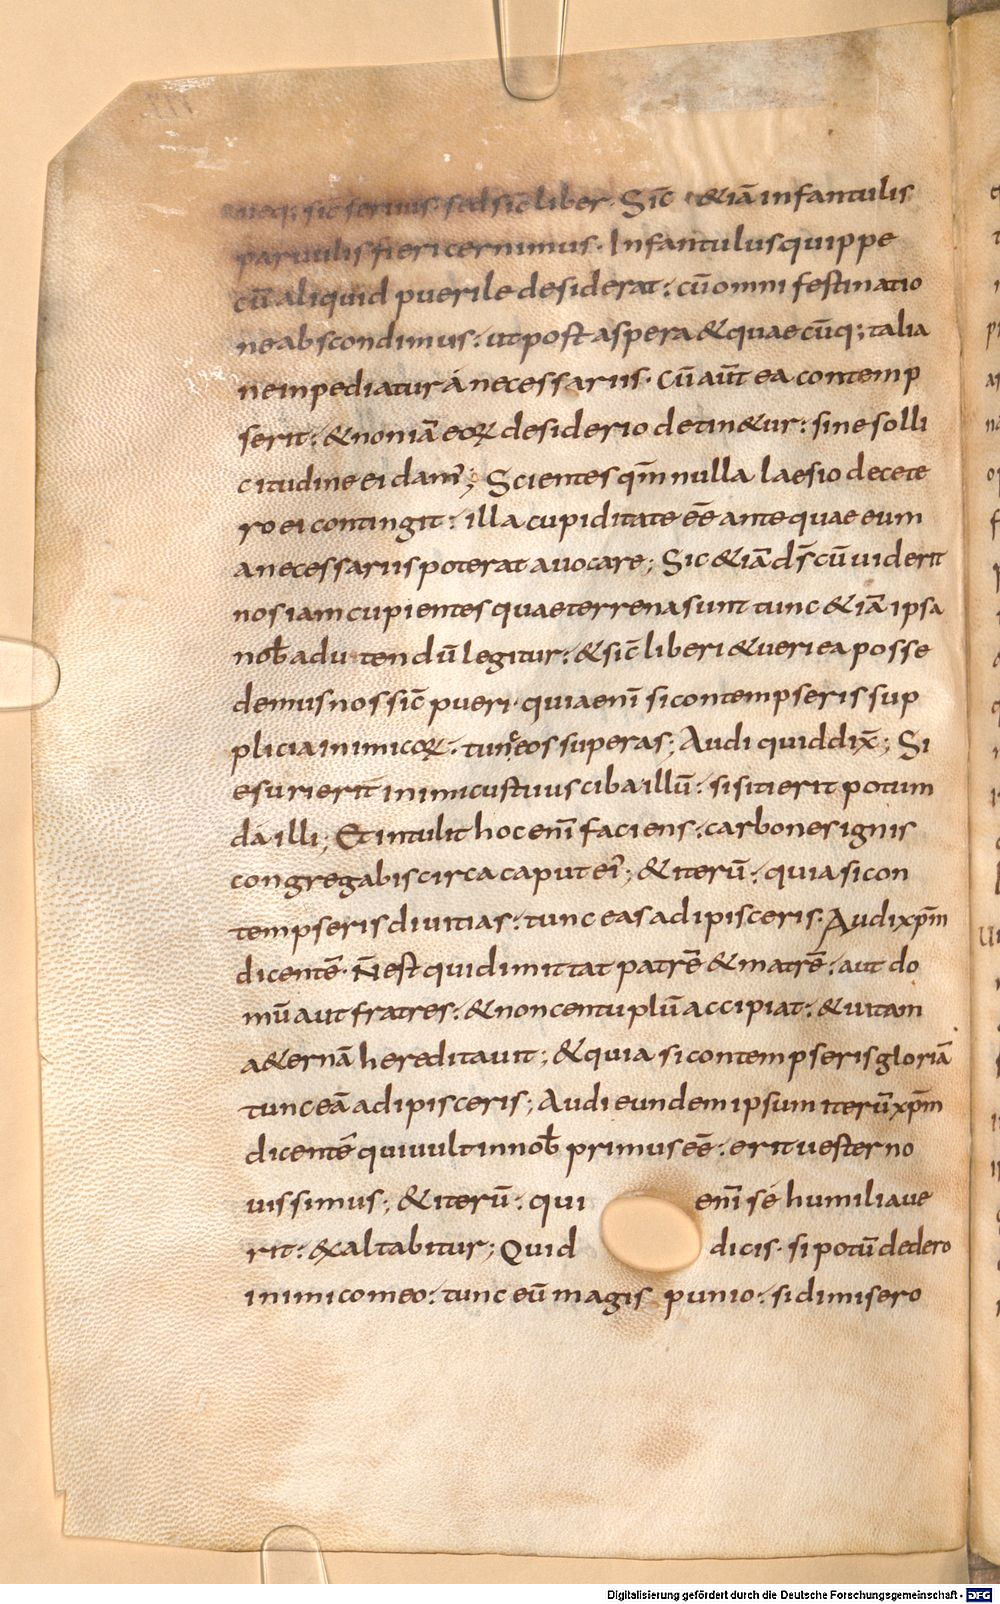 eisq; sic̄ seruus· sed sic̄ liber· Sic̄ &iā infantulis
paruulis fieri cernimus· Infantulus quippe
cū aliquid puerile desiderat: cū omni festinatio
ne abscondimus: ut post aspera & quae cūq; talia
ne inpediatur á necessariis· Cū aūt ea contemp
serit: & non iā eoꝝ desiderio detin&ur: sine solli
citudine ei danr̄; Scientes qm̄ nulla laesio de cete
ro ei contingit: illa cupiditate eē ante quae eum
a necessariis poterat auocare; Sic &iā dś cū uiderit
nos iam cupientes quae terrena sunt tunc &iā ipsa
nob̄ adutendū legitur: & sic̄ liberi & ueri ea posse
demus nos sic̄ pueri· quia enī si contempseris sup
plicia inimicoꝝ· tunc eos superas; Audi quid dix̄; Si
esurierit inimicus tuus ciba illū: si sitierit potum
da illi; Et intulit hoc enī faciens· carbones ignis
congregabis circa caput ei'; & iterū: quia si con
tempseris diuitias: tunc eas adipisceris· Audi xp̄m
dicentē· N̄ est qui dimittat patrē & matrē: aut do
mū aut fratres: & non centuplū accipiat: & uitam
a&ernā hereditauit; & quia si contempseris gloriā
tunc eā adipisceris; Audi eundem ipsum iterū xp̄m
dicentē qui uult in nob̄ primus eē: erit uester no
uissimus; & iterū: qui enī sé humiliaue
rit: &xaltabitur; Quid dicis· si potū dedero
inimico meo: tunc eū magis punio: si dimisero
Digitalisierung gefördert durch die Deutsche Forschungsgemeinschaft - DFG